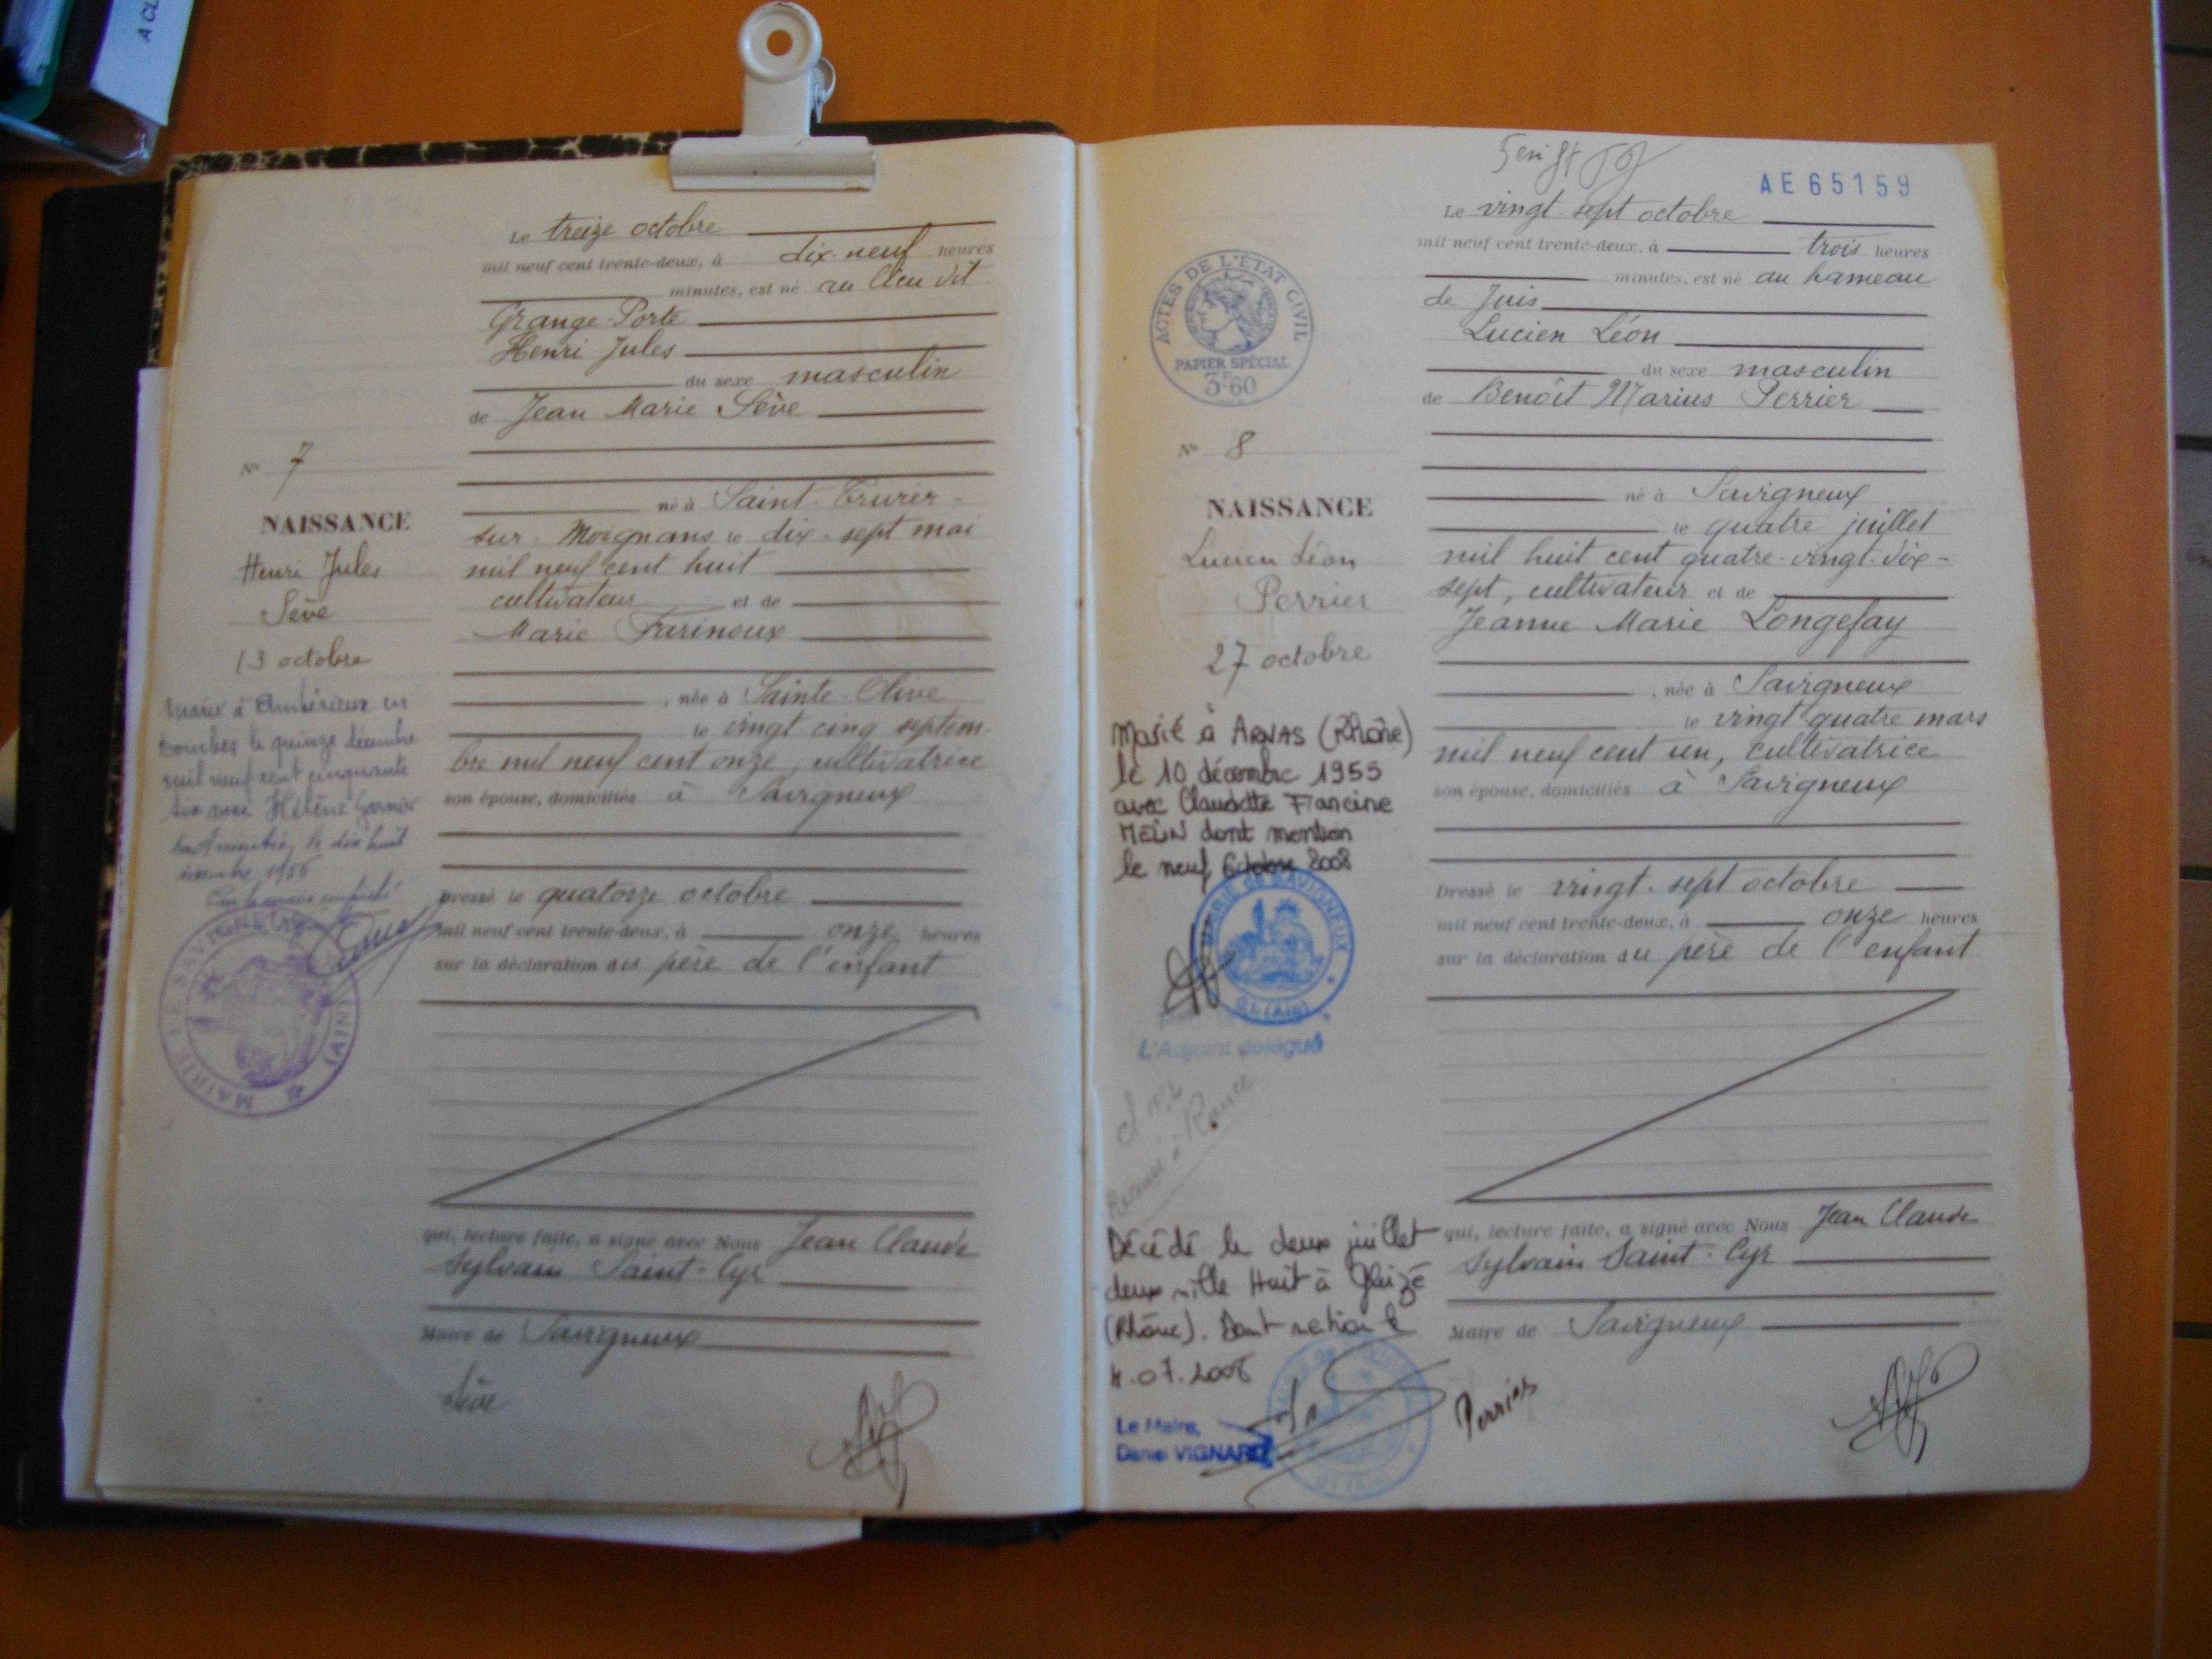 A CL
Le treize octobre
mil neuf cent trente-deux, à dix-neuf heures
minutes, est né au lieu dit
Grange-Porte
Henri Jules
du sexe masculin
de Jean Marie Sève
né à Saint-Trivier-
sur-Moignans le dix-sept mai
mil neuf cent huit
cultivateur et de
Marie Farinoux
, née à Sainte-Olive
le vingt-cinq septem-
bre mil neuf cent onze, cultivatrice
son épouse, domiciliés à Savigneux
Dressé le quatorze octobre
mil neuf cent trente-deux, à onze heures
sur la déclaration du père de l'enfant
qui, lecture faite, a signé avec Nous Jean Claude
Sylvain Saint-Cyr
Maire de Savigneux
Sève
N° 7
NAISSANCE
Henri Jules
Sève
13 octobre
Marié à Ambérieux en
Dombes le quinze décembre
mil neuf cent cinquante
six avec Hélène Garnier
le dix huit
décembre 1956
MAIRIE DE SAVIGNEUX (AIN)
AE65159
Le vingt-sept octobre
mil neuf cent trente-deux, à trois heures
minutes, est né au hameau
de Juis
Lucien Léon
du sexe masculin
de Benoît Marius Perrier
né à Savigneux
le quatre juillet
mil huit cent quatre-vingt-dix-
sept, cultivateur et de
Jeanne Marie Longefay
, née à Savigneux
le vingt quatre mars
mil neuf cent un, cultivatrice
son épouse, domiciliés à Savigneux
Dressé le vingt-sept octobre
mil neuf cent trente-deux, à onze heures
sur la déclaration du père de l'enfant
qui, lecture faite, a signé avec Nous Jean Claude
Sylvain Saint-Cyr
Maire de Savigneux
Perrier
ACTES DE L'ÉTAT CIVIL
PAPIER SPÉCIAL
3F60
N° 8
NAISSANCE
Lucien Léon
Perrier
27 octobre
Marié à ARNAS (Rhône)
le 10 décembre 1955
avec Claudette Francine
MELIN dont mention
le neuf Octobre 2008
MAIRIE de SAVIGNEUX
01 (Ain)
L'Adjoint délégué
Décédé le deux juillet
deux mille Huit à Gleizé
(Rhône). Dont mention le
4.07.2008
Le Maire,
Daniel VIGNARD